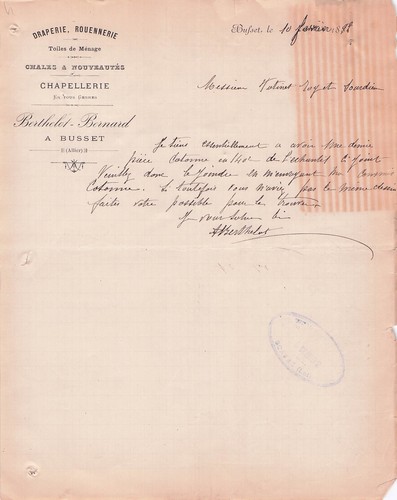 DRAPERIE, ROUENNERIE
Toiles de Ménage
CHALES & NOUVEAUTÉS
CHAPELLERIE
EN TOUS GENRES
Berthelot-Bernard
A BUSSET
(Allier)
Busset, le 10 février 1898
Messieurs
Je tiens essentiellement a avoir Une demie
pièce Cotonne en 140c de l'echantel Ci Joint
Veuillez donc le Joindre en m'envoyant
Cotonne. Si toutefois vous n'aviez pas le même dessin
faites votre possible pour le trouver
Je vous salue bien
Berthelot